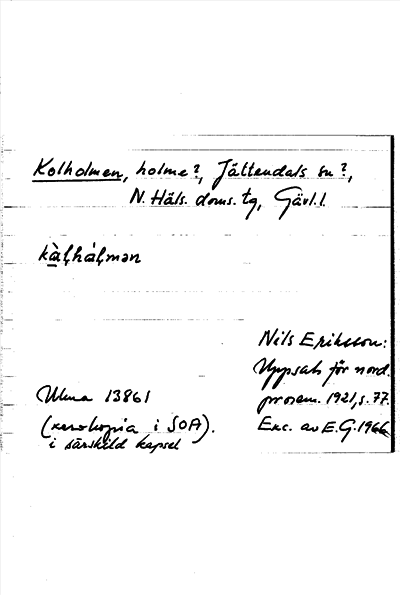 Kolholmen, holme?, Jättendals sn?,
N. Häls. doms. tg, Gävl. l.
kàḷhȧḷmən
Nils Eriksson:
Uppsats för nord.
prosem. 1921, s. 77.
Exc. av E.G. 1966
Ulma 13861
(xerokopia i SOA).
i särskild kapsel